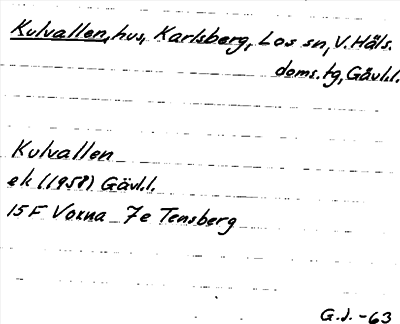 Kulvallen, hus, Karlsberg, Los sn, V. Häls.
doms. tg, Gävl.l.
Kulvallen
ek (1958) Gävl.l.
15 F Voxna 7e Tensberg
G.J. -63